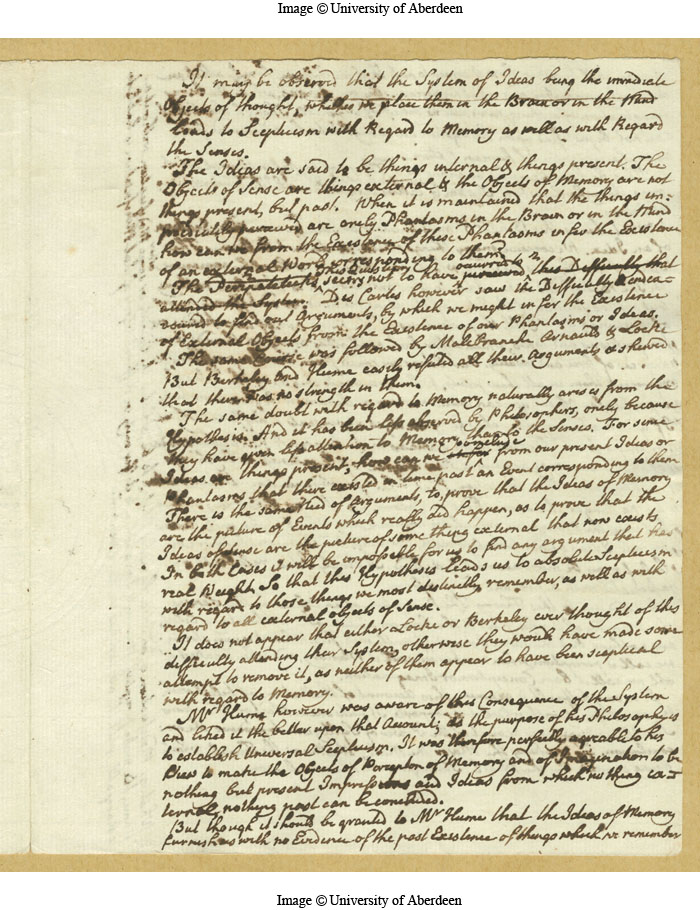 Image © University of Aberdeen
It may be observed that the System of Ideas being the immediate
Objects of thought, whether we place them in the Brain or in the Mind
leads to Scepticism with Regard to Memory as well as with Regard
the Senses.
The Ideas are said to be things internal & things present. The
Objects of Sense are things external & the Objects of Memory are not
things present, but past. When it is maintained that the things im-
mediately perceived are onely Phantasms in the Brain or in the Mind
how can we from the Existence of these Phantasms infer the Existence
of an external World corresponding to them
The Peripateticks, seem not to have perceived this Difficulty that
attended the System. Des Cartes however saw the Difficulty & endea-
voured to find out Arguments, by which we might infer the Existence
of External Objects from the Existence of our Phantasms or Ideas.
The same Course was followed by Malebranche Arnauld & Locke
But Berkeley and Hume easily refuted all their Arguments & shewed
that there was no strength in them.
The same doubt with regard to Memory naturally arises from the
Hypothesis. And it has been less observed by Philosophers, onely because
they have given less attention to Memory than to the Senses. For since
Ideas are things present, how can we conclude from our present Ideas or
Phantasms that there existed in time past an Event corresponding to them
There is the same need of Arguments, to prove that the Ideas of Memory
are the picture of Events which really did happen, as to prove that the
Ideas of Sense are the picture of some thing external that now exists.
In both Cases it will be impossible for us to find any argument that has
real Weight. So that this Hypothesis leads us to absolute Scepticism
with regard to those things we most distinctly remember, as well as with
regard to all external objects of Sense.
It does not appear that either Locke or Berkeley ever thought of this
difficulty attending their System, otherwise they would have made some
attempt to remove it, as neither of them appear to have been sceptical
with regard to Memory.
Mr Hume however was aware of this Consequence of the System
and liked it the better upon that Account; as the purpose of his Philosophy is
to establish Universal Scepticism. It was therefore perfectly agreable to his
View to make the Objects of Perception of Memory and of Imagination to be
nothing but present Impressions and Ideas from which nothing ex-
ternal nothing past can be concluded.
But though it should be granted to Mr Hume that the Ideas of Memory
furnish us with no Evidence of the past Existence of things which we remember
Image © University of Aberdeen